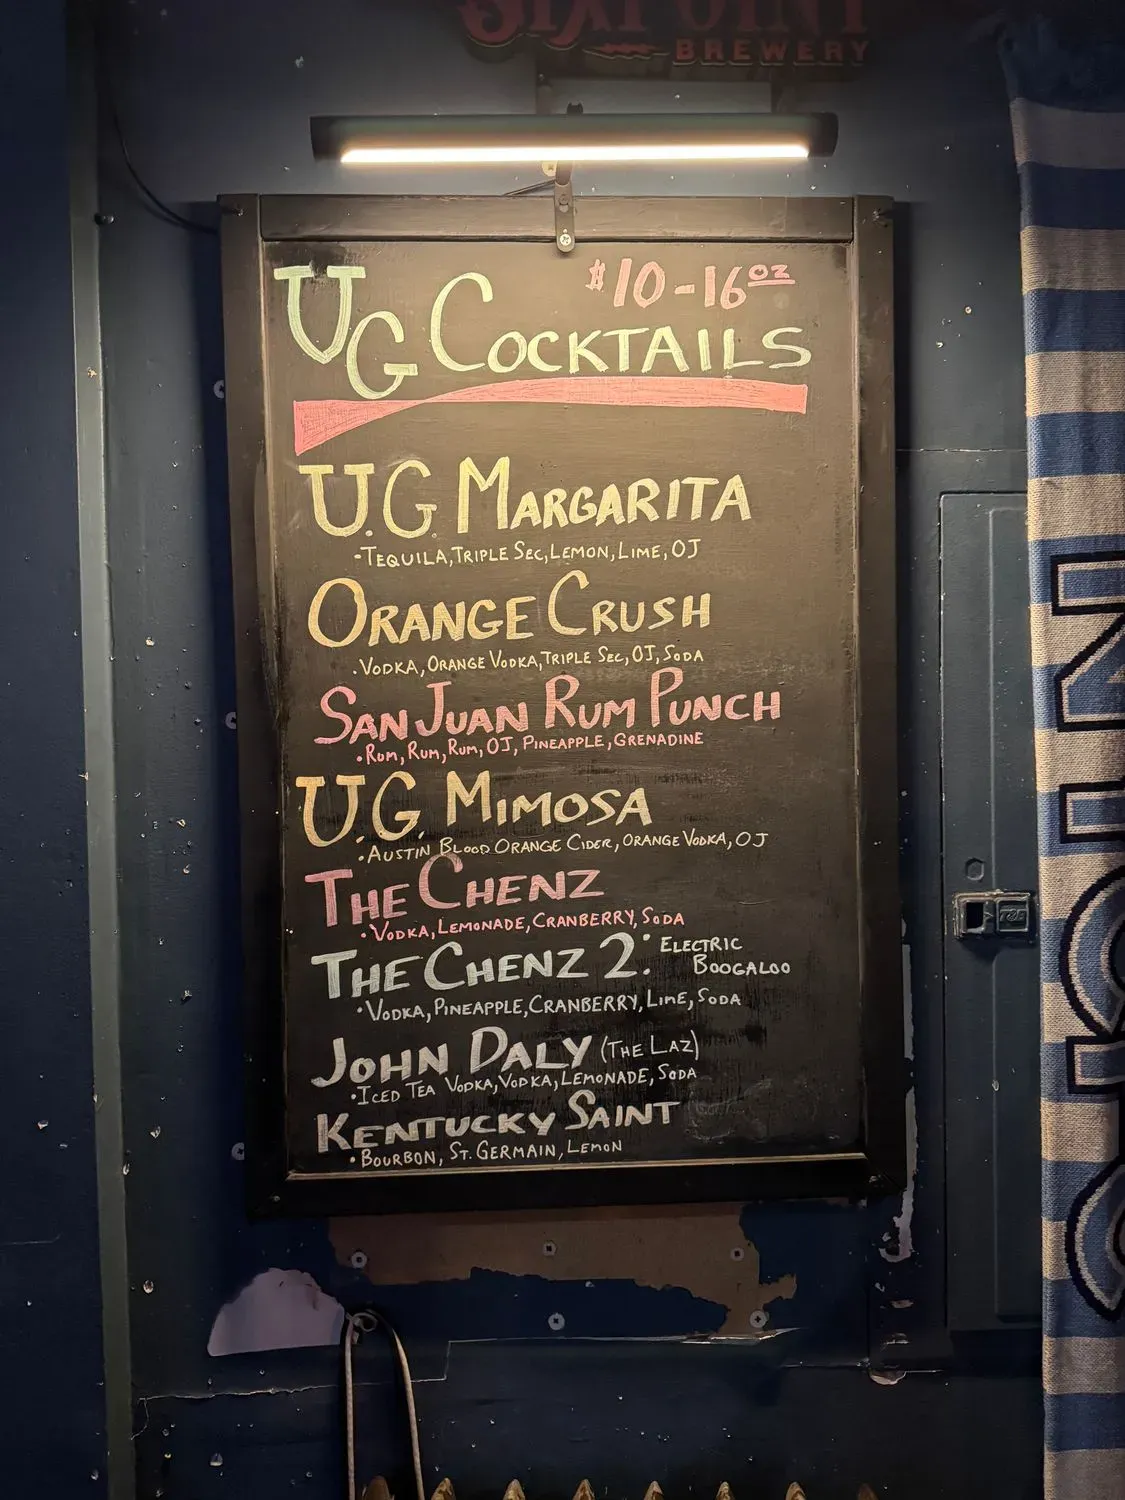 SIXPOINT
BREWERY
$10-16oz
UG COCKTAILS
U.G. MARGARITA
•TEQUILA, TRIPLE SEC, LEMON, LIME, OJ
ORANGE CRUSH
•VODKA, ORANGE VODKA, TRIPLE SEC, OJ, SODA
SAN JUAN RUM PUNCH
•RUM, RUM, RUM, OJ, PINEAPPLE, GRENADINE
U.G. MIMOSA
•AUSTIN BLOOD ORANGE CIDER, ORANGE VODKA, OJ
THE CHENZ
•VODKA, LEMONADE, CRANBERRY, SODA
THE CHENZ 2: ELECTRIC
BOOGALOO
•VODKA, PINEAPPLE, CRANBERRY, LIME, SODA
JOHN DALY (THE LAZ)
•ICED TEA VODKA, VODKA, LEMONADE, SODA
KENTUCKY SAINT
•BOURBON, ST. GERMAIN, LEMON